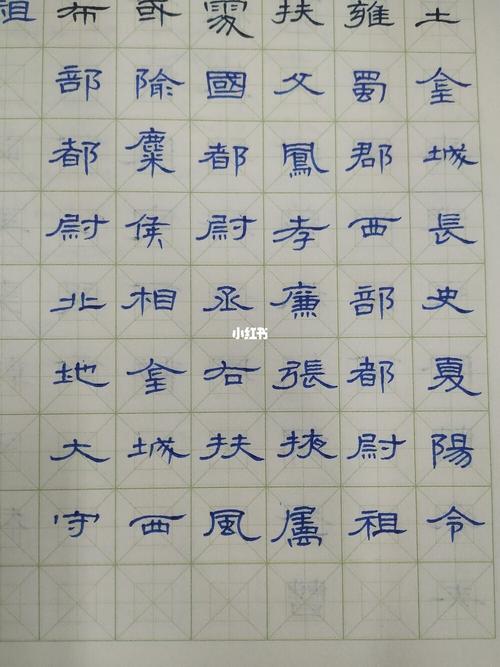 土金城長史夏陽令
雍蜀郡西部都尉祖
扶父鳳孝廉張掖屬
處國都尉丞右扶風
或隃麋侯相金城西
布部都尉北地大守
祖
小红书